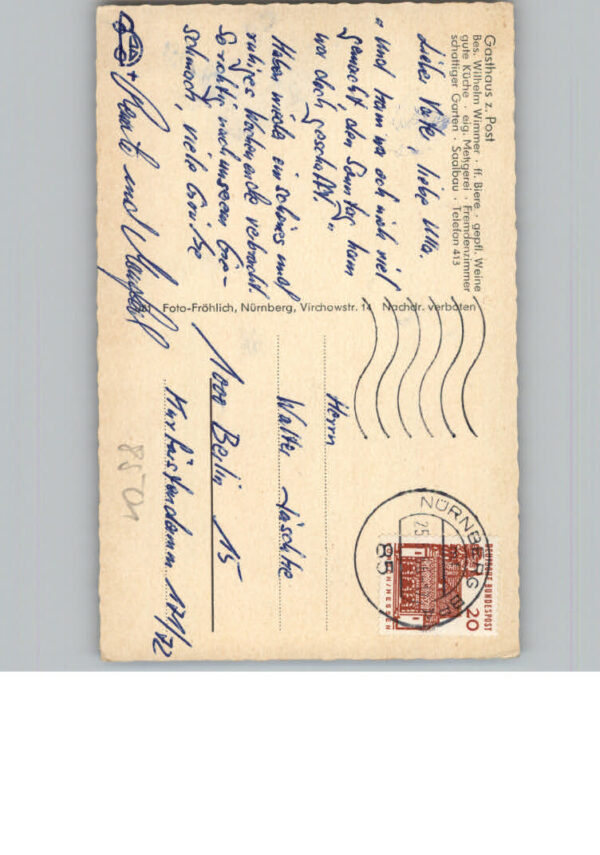 Gasthaus z. Post
Bes. Wilhelm Wimmer · ff. Biere · gepfl. Weine
gute Küche · eig. Metzgerei · Fremdenzimmer
schattiger Garten · Saalbau · Telefon 413
Lieber Vati, liebe Ulla.
"Und ham wa och nich viel
gemacht, den Sonntag ham
wa doch geschafft."
Haben wieda ein schönes und
ruhiges Wochenende verbracht.
So richtig nach unserem Ge-
schmack. Viele Grüße
+ und
Foto-Fröhlich, Nürnberg, Virchowstr. 14 Nachdr. verboten
Herrn
Walter
1000 Berlin 15
Kurfürstendamm 171/72
8501
NÜRNBERG
25.
85
DEUTSCHE BUNDESPOST
20
HESSEN